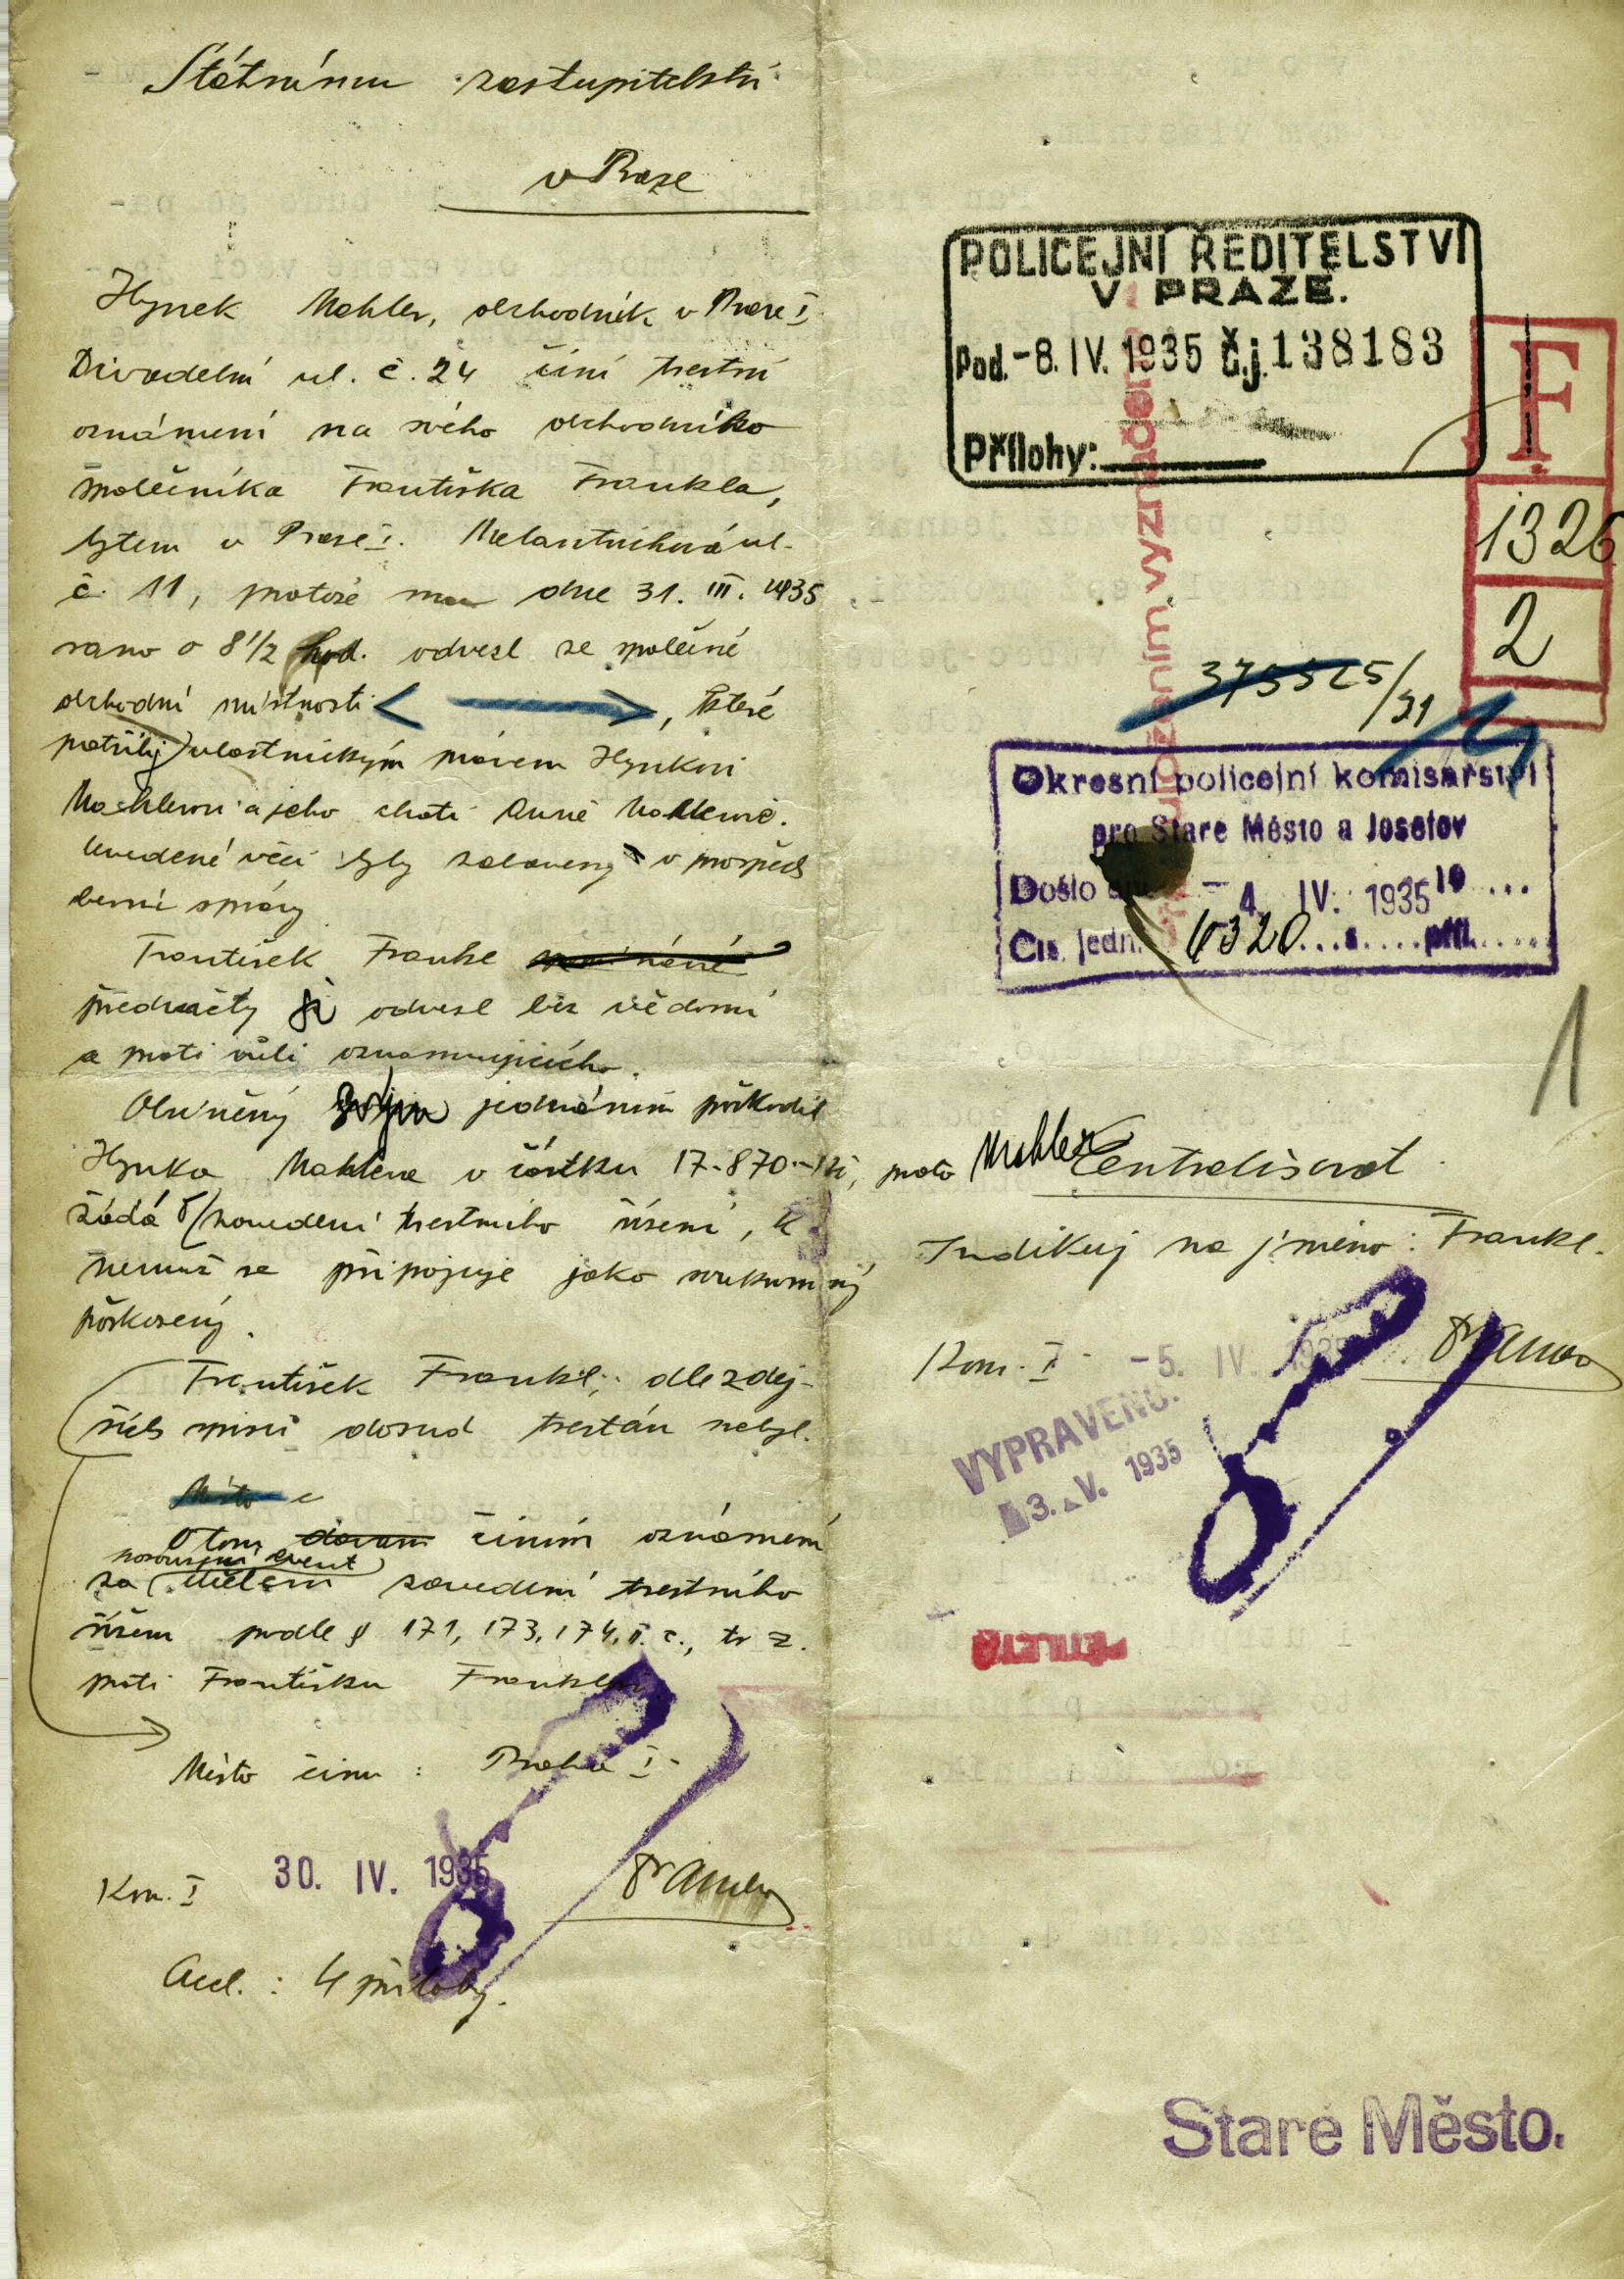 Státnímu zastupitelství
v Praze
Hynek Mahler, obchodník v Praze I.
Divadelní ul. č. 24 činí trestní
oznámení na svého obchodního
společníka Františka Frankla,
bytem v Praze I. Melantrichova ul.
č. 11, protože dne 31. III. 1935
ráno o 8 1/2 hod. odvezl ze společné
obchodní místnosti , které
patřily vlastnickým právem Hynkovi
Mahlerovi a jeho choti Anně Mahlerové.
Uvedené věci byly zabaveny v prospěch
berní správy
František Frankl
předměty si odvezl bez vědomí
a proti vůli oznamujícího.
Obviněný jednáním poškodil
Hynka Mahlera v částku 17.870.- Kč, proto Mahler
žádá o zavedení trestního řízení, k
němuž se připojuje jako soukromý
poškozený.
František Frankl, dle zdej-
ších spisů dosud trestán nebyl.
Místo
O tom činím oznámení
event
za účelem zavedení trestního
řízení podle § 171, 173, 174, II. c., tr. z.
proti Františku Franklovi
Místo činu : Praha I.
Kom. I 30. IV. 1935
4 přílohy.
POLICEJNÍ ŘEDITELSTVÍ
V PRAZE.
Pod. -8. IV. 1935 Č.j. 138183
Přílohy:
F
1326
2
/31
Okresní policejní komisařství
pro Staré Město a Josefov
Došlo dne - 4. IV. 1935 19...
Čís. jedn. 6320 ...s....příl.....
1
Centralisovat
Indikuj na jméno: Frankl.
Kom. I. -5. IV. 1935
VYPRAVENO.
3. V. 1935
PĚTILETÁ
Staré Město.